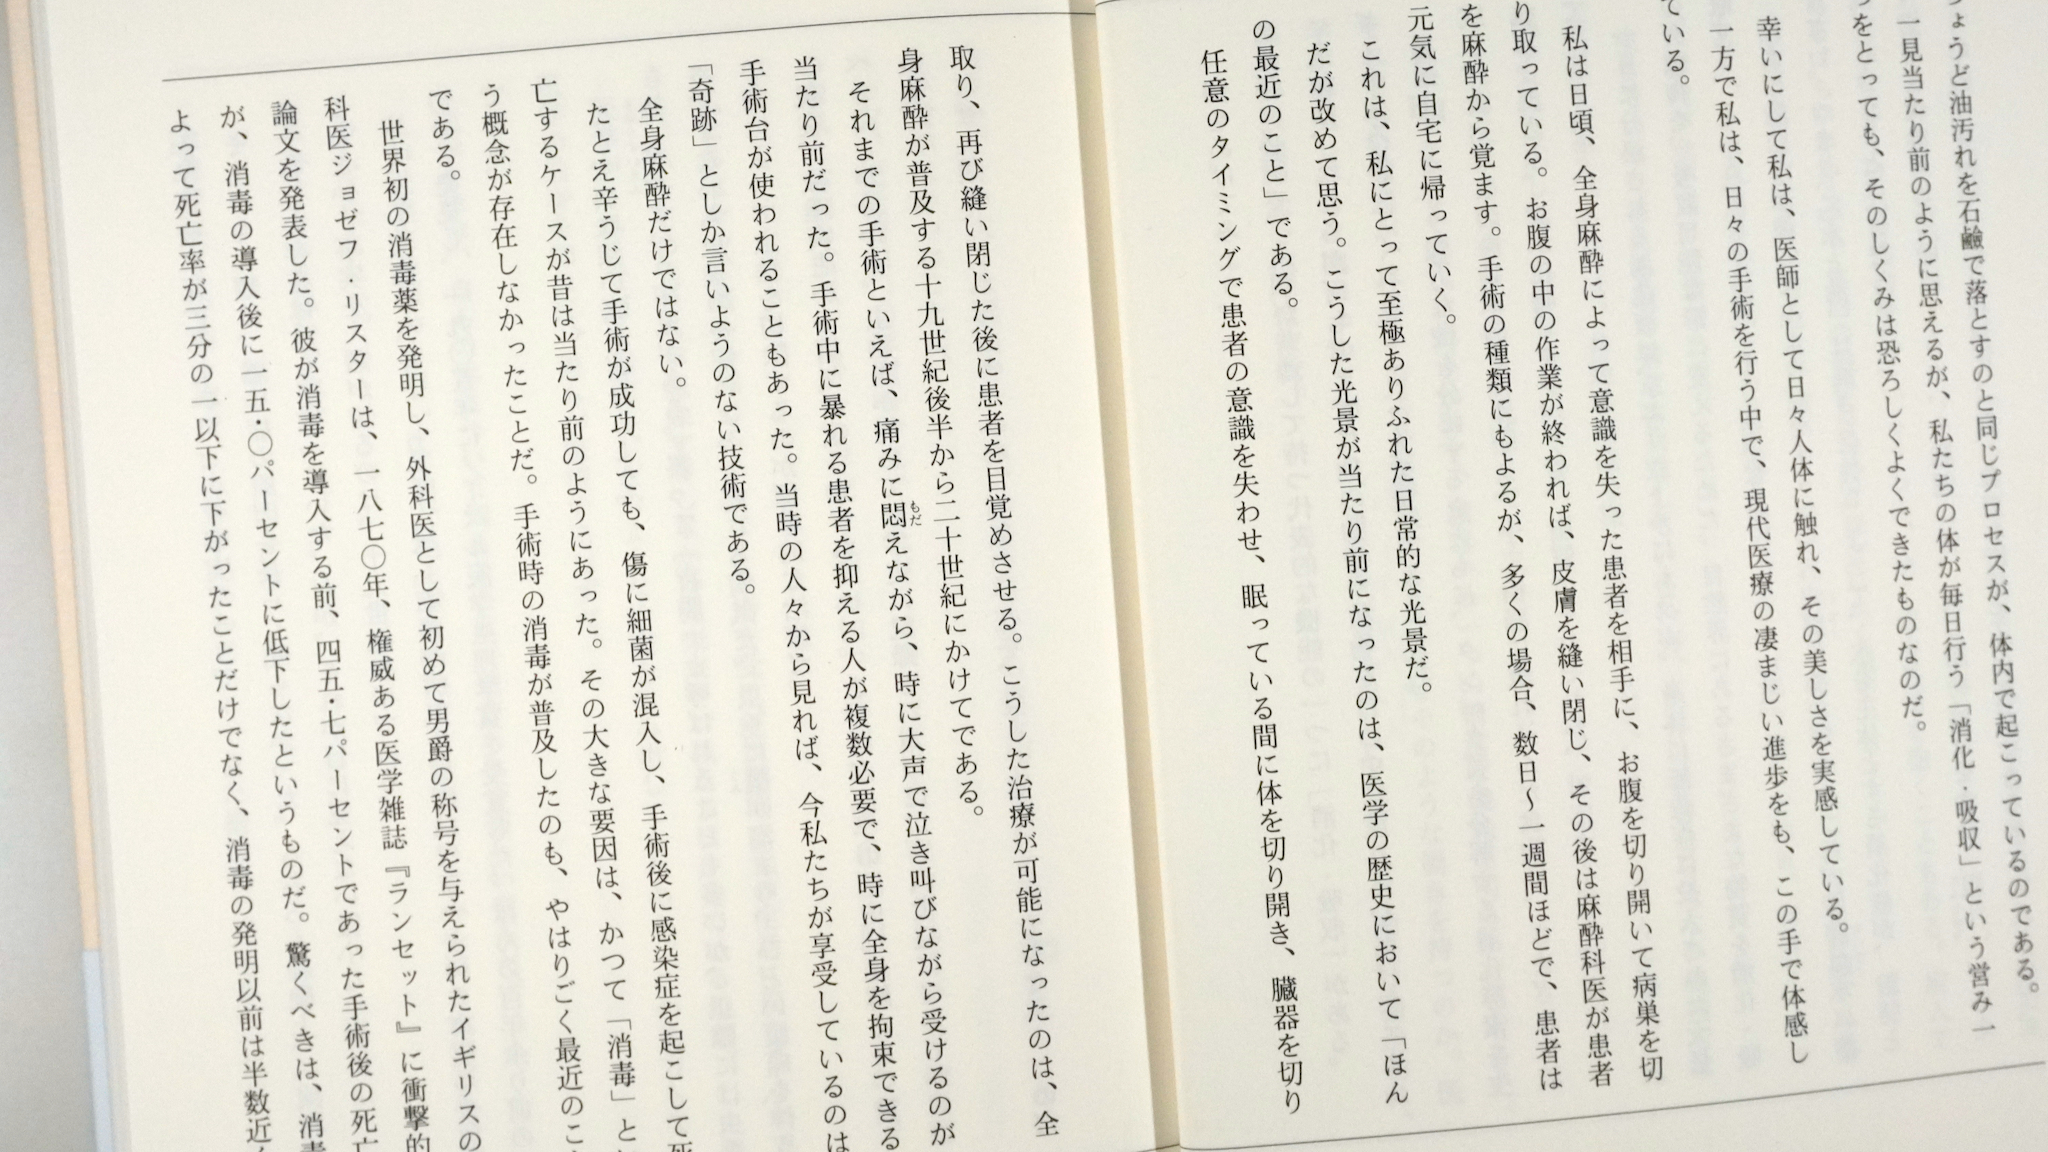 ょうど油汚れを石鹼で落とすのと同じプロセスが、体内で起こっているのである。
一見当たり前のように思えるが、私たちの体が毎日行う「消化・吸収」という営み一
つをとっても、そのしくみは恐ろしくよくできたものなのだ。
幸いにして私は、医師として日々人体に触れ、その美しさを実感している。
一方で私は、日々の手術を行う中で、現代医療の凄まじい進歩をも、この手で体感し
ている。
私は日頃、全身麻酔によって意識を失った患者を相手に、お腹を切り開いて病巣を切
り取っている。お腹の中の作業が終われば、皮膚を縫い閉じ、その後は麻酔科医が患者
を麻酔から覚ます。手術の種類にもよるが、多くの場合、数日〜一週間ほどで、患者は
元気に自宅に帰っていく。
これは、私にとって至極ありふれた日常的な光景だ。
だが改めて思う。こうした光景が当たり前になったのは、医学の歴史において「ほん
の最近のこと」である。
任意のタイミングで患者の意識を失わせ、眠っている間に体を切り開き、臓器を切り
取り、再び縫い閉じた後に患者を目覚めさせる。こうした治療が可能になったのは、全
身麻酔が普及する十九世紀後半から二十世紀にかけてである。
それまでの手術といえば、痛みに悶えながら、時に大声で泣き叫びながら受けるのが
当たり前だった。手術中に暴れる患者を抑える人が複数必要で、時に全身を拘束できる
手術台が使われることもあった。当時の人々から見れば、今私たちが享受しているのは
「奇跡」としか言いようのない技術である。
全身麻酔だけではない。
たとえ辛うじて手術が成功しても、傷に細菌が混入し、手術後に感染症を起こして死
亡するケースが昔は当たり前のようにあった。その大きな要因は、かつて「消毒」と
う概念が存在しなかったことだ。手術時の消毒が普及したのも、やはりごく最近のこ
である。
世界初の消毒薬を発明し、外科医として初めて男爵の称号を与えられたイギリスの
科医ジョゼフ・リスターは、一八七〇年、権威ある医学雑誌『ランセット』に衝撃的
論文を発表した。彼が消毒を導入する前、四五・七パーセントであった手術後の死亡
が、消毒の導入後に一五・〇パーセントに低下したというものだ。驚くべきは、消毒
よって死亡率が三分の一以下に下がったことだけでなく、消毒の発明以前は半数近く